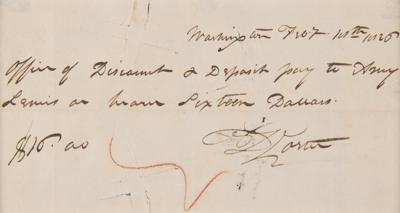 Washington Nov 10th 1826
Office of Discount & Deposit pay to Amy
Lewis or bearer Sixteen Dollars.
$16.00
D Porter